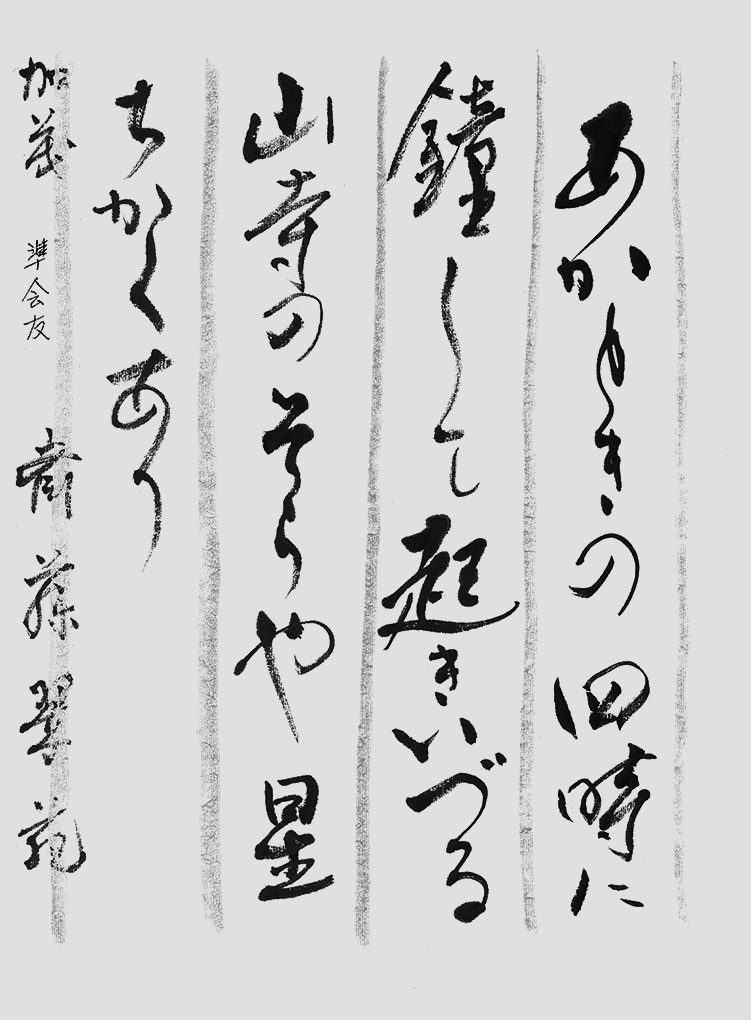 あかときの四時に
鐘して起きいづる
山寺のそらや星
ちかくあり
加茂 準会友 斎藤翠苑